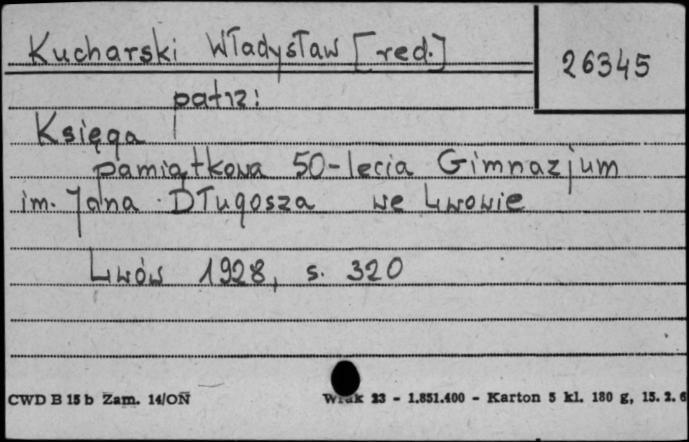 Kucharski Władysław [red.]
26345
patrz:
Księga
pamiątkowa 50-lecia Gimnazjum
im. Jana Długosza we Lwowie
Lwów 1928, s. 320
CWD B 15 b Zam. 14/ON
23 - 1.851.400 - Karton 5 kl. 180 g, 15. 2. 6